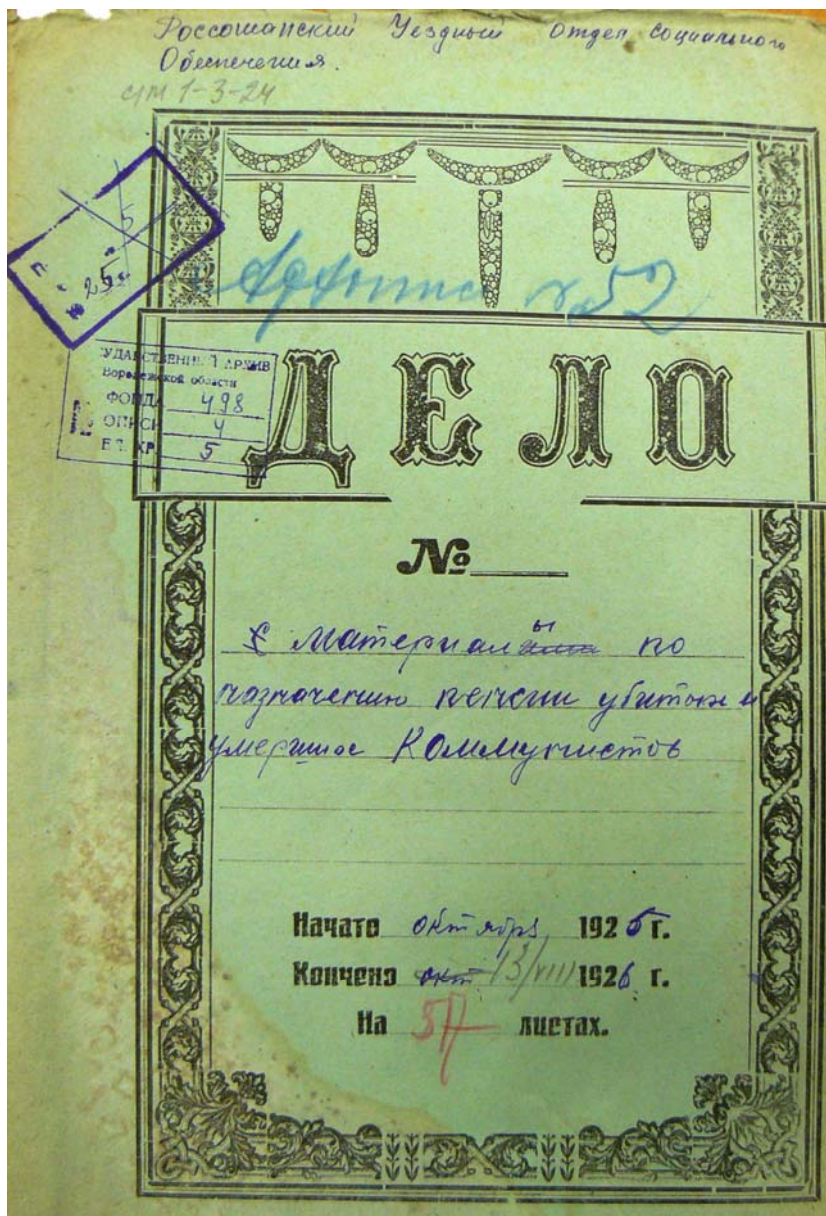 Россошанский Уездный Отдел Социального
Обеспечения.
1-3-24
5
25
№ 52
УДАРСТВЕННЫЙ АРХИВ
Воронежской области
ФОНДА 498
ОПИСИ 4
ЕД. ХР. 5
ДЕЛО
№
Материалы по
назначению пенсии убитых и
умерших Коммунистов
Начато октября 1925 г.
Кончено окт 13/VIII 1926 г.
На 57 листах.